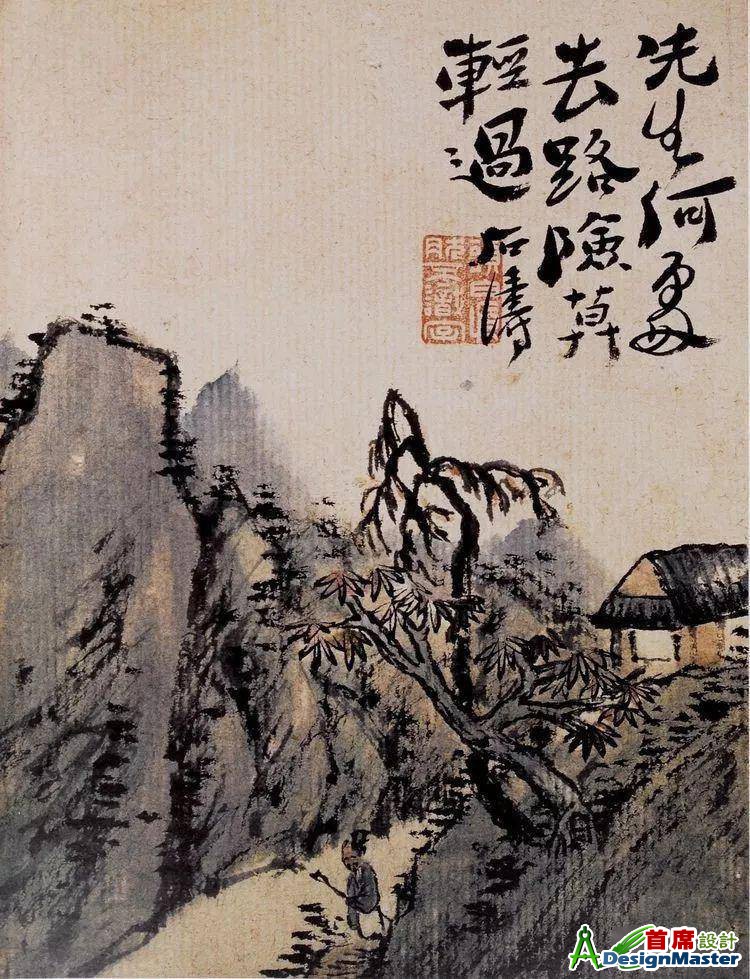 先生何處
去路險莫
輕過 石濤
首席設計
DesignMaster